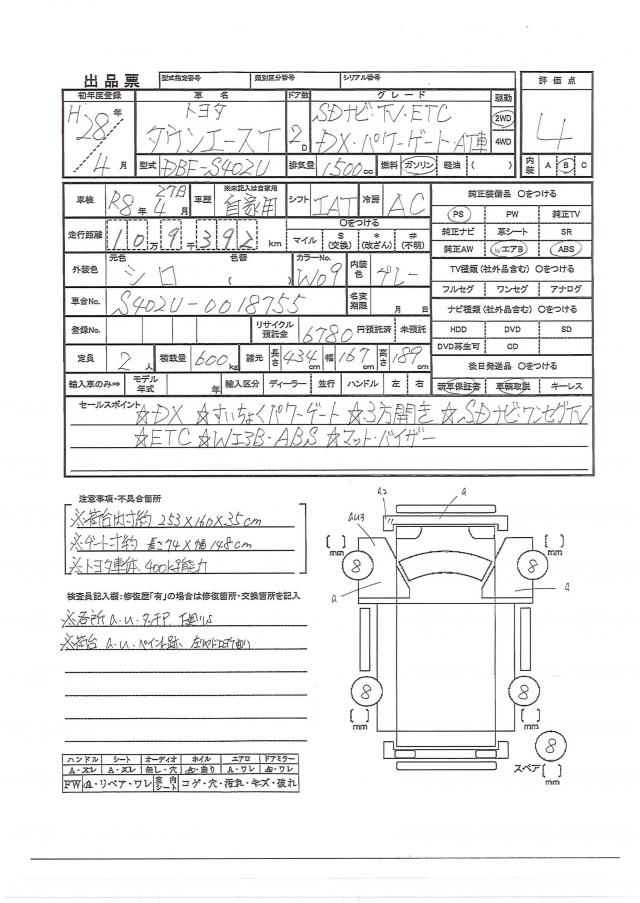 出品票 型式指定番号 類別区分番号 シリアル番号
初年度登録 車名 ドア数 グレード 駆動 評価点
H28年 4月 トヨタ 2D SDナビ・TV・ETC 2WD 4
タウンエースT DX・パワーゲート・AT車 4WD
型式 DBF-S402U 排気量 1500cc 燃料 ガソリン 軽油 ( ) 内装 A B C
車検 R8年 4月 27日 車歴 ※未記入は自家用 自家用 シフト IAT 冷房 AC 純正装備品 〇をつける
PS PW 純正TV
走行距離 10万9千392km 〇をつける マイル $(交換) *(改ざん) #(不明) 純正ナビ 革シート SR
純正AW WエアB ABS
外装色 元色 シロ 色替 ( ) カラーNo. W09 内装色 グレー TV種類(社外品含む) 〇をつける
フルセグ ワンセグ アナログ
車台No. S402U-0018755 名変期限 月 日 ナビ種類(社外品含む) 〇をつける
登録No. リサイクル預託金 6780 円預託済 未預託 HDD DVD SD
DVD再生可 CD
定員 2人 積載量 600kg 諸元 長さ 434cm 幅 167cm 高さ 189cm 後日発送品 〇をつける
輸入車のみ⇒ モデル年式 年 輸入区分 ディーラー 並行 ハンドル 左 右 新車保証書 車輌取説 キーレス
セールスポイント ☆DX ☆すいちょくパワーゲート ☆3方開き ☆SDナビ・ワンセグTV
☆ETC ☆WエアB・ABS ☆マット・バイザー
注意事項・不具合箇所
※荷台内寸約 253×160×35cm
※ゲート寸約 長さ74×幅148cm
※トヨタ車体 400kg能力
検査員記入欄:修復歴「有」の場合は修復箇所・交換箇所を記入
※各所 a.u.タッチP
※荷台 a.u.ペイント跡、
A2 a
AU3
a a
8 8
8 8
8
[ ]mm [ ]mm
[ ]mm [ ]mm
スペア [ ]mm
ハンドル シート オーディオ ホイル エアロ ドアミラー
A・スレ A・スレ 無し・穴 点・曲り A・ワレ 点・ワレ
FW 点・リペア・ワレ 室内シート コゲ・穴・汚れ・キズ・破れ